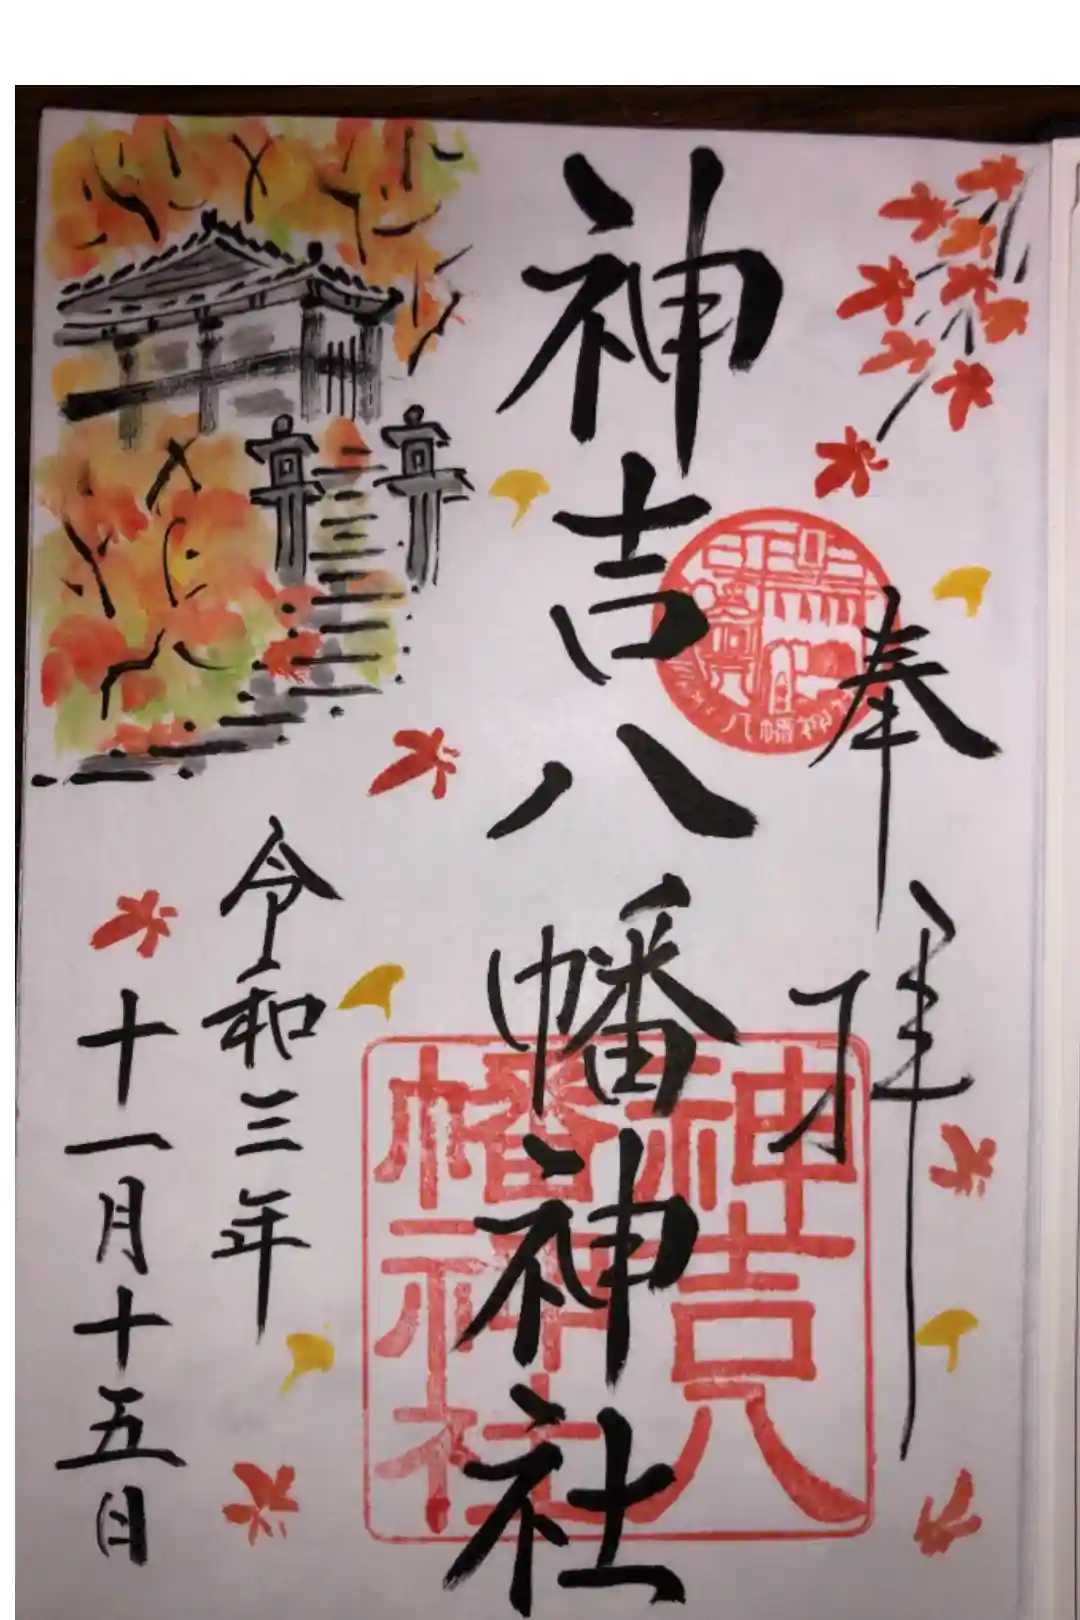 奉拝
神吉八幡神社
令和三年
十一月十五日
神吉八
幡神社